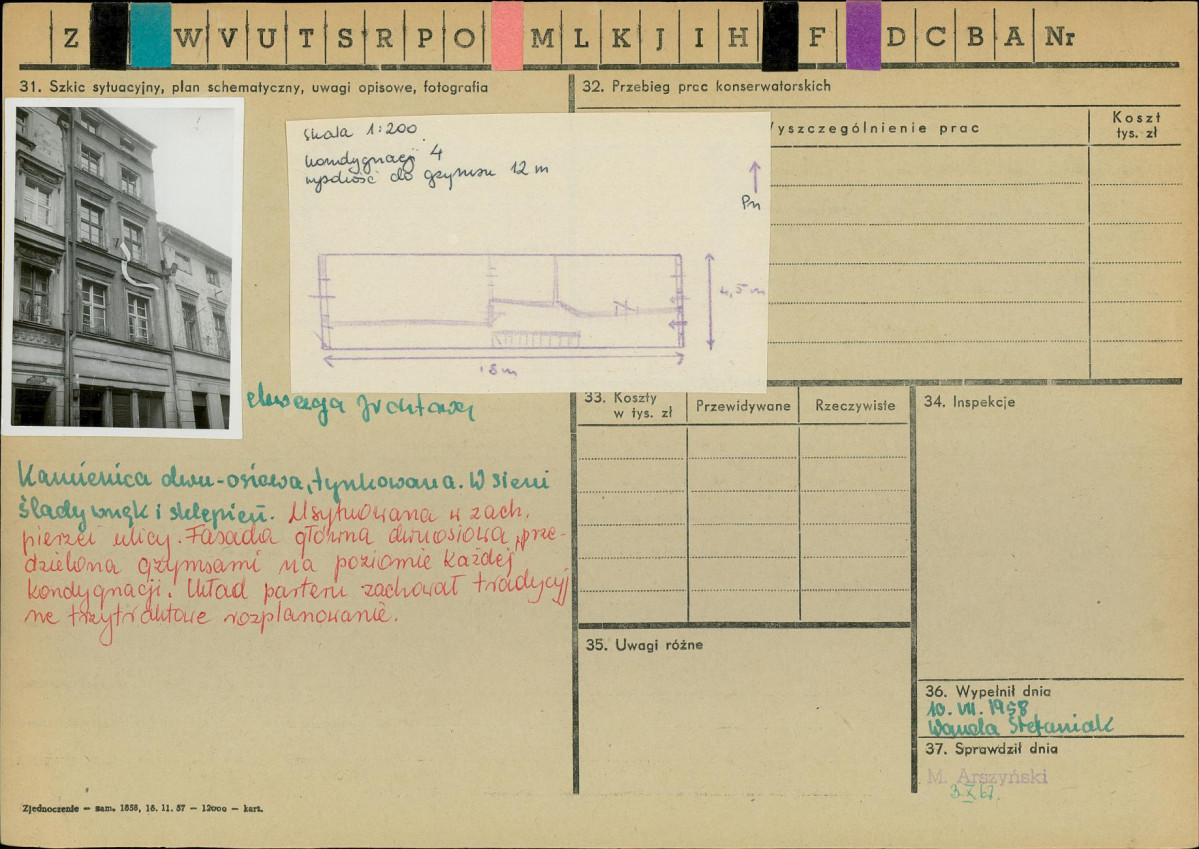 Z W V U T S R P O M L K J I H F D C B A Nr
31. Szkic sytuacyjny, plan schematyczny, uwagi opisowe, fotografia
32. Przebieg prac konserwatorskich
Wyszczególnienie prac
Koszt
tys. zł
skala 1:200.
kondygnacji 4
wysokość do gzymsu 12 m
Pn
4,5 m
18 m
elewacja frontowa
Kamienica dwu-osiowa, tynkowana. W sieni
ślady wnęk i sklepień. Usytuowana w zach.
pierzei ulicy. Fasada główna dwuosiowa, prze-
dzielona gzymsami na poziomie każdej
kondygnacji. Układ parteru zachował tradycyj
ne trzytraktowe rozplanowanie.
33. Koszty
w tys. zł
Przewidywane
Rzeczywiste
34. Inspekcje
35. Uwagi różne
36. Wypełnił dnia
10. VII. 1958
Wanda Stefaniak
37. Sprawdził dnia
M. Arszyński
3 X 67.
Zjednoczenie — zam. 1858, 16. 11. 57 — 12000 — kart.